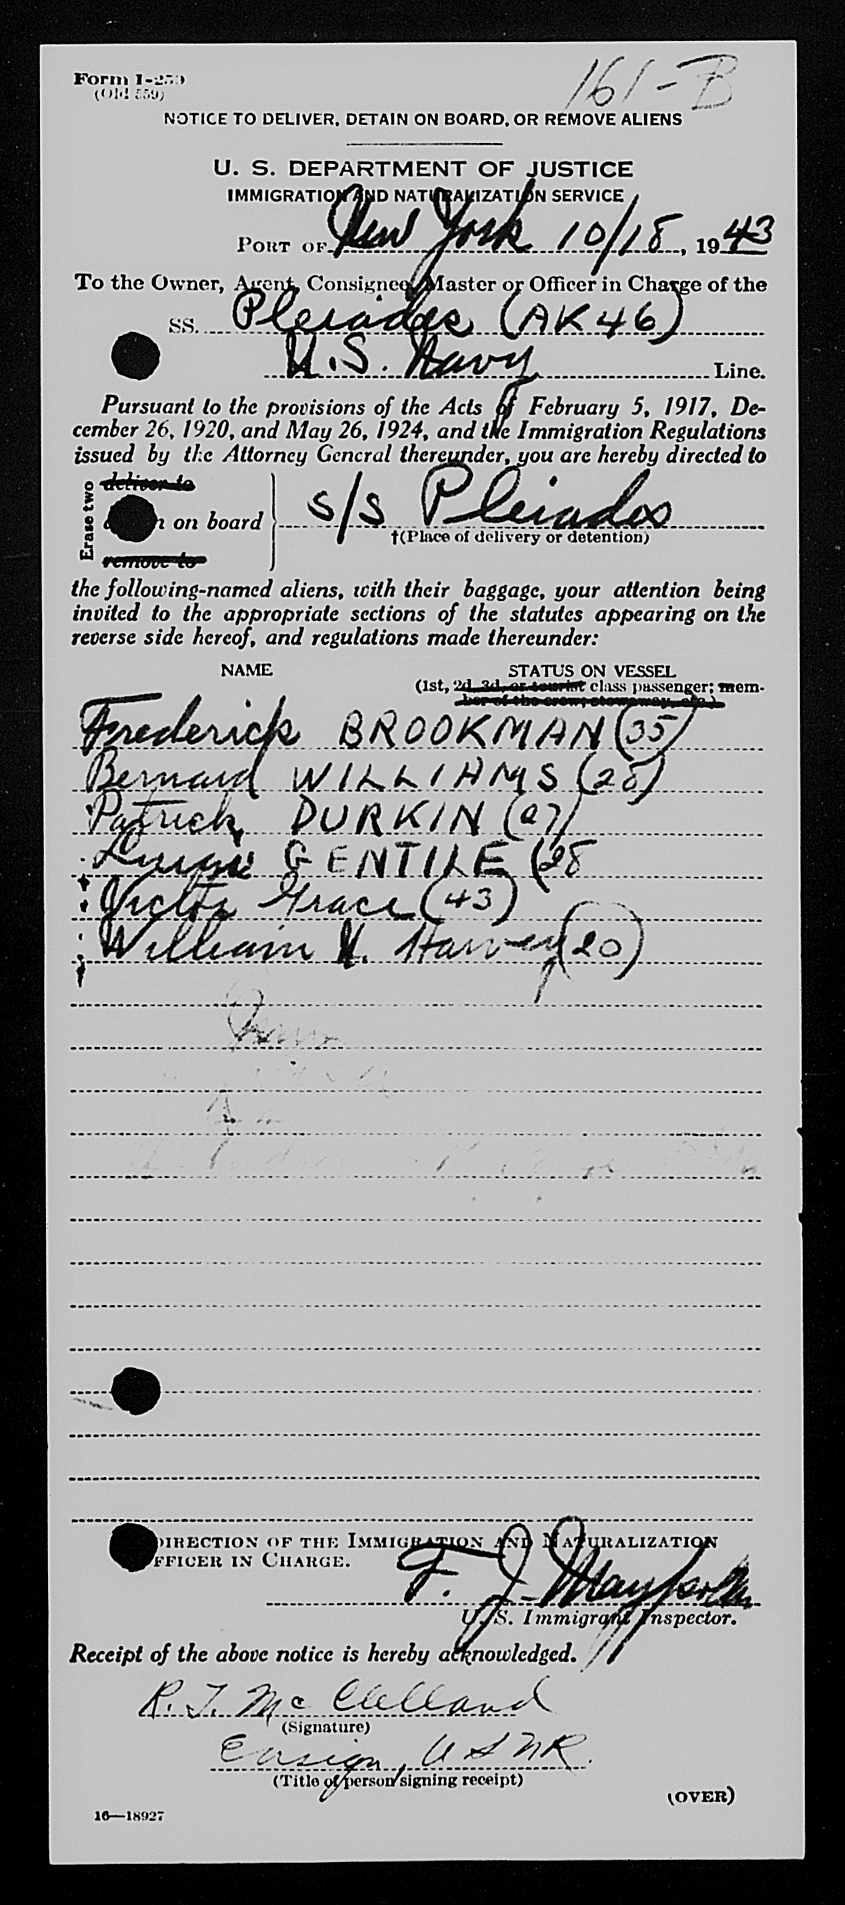 Form I-259
(Old 559)
161-B
NOTICE TO DELIVER, DETAIN ON BOARD, OR REMOVE ALIENS
U. S. DEPARTMENT OF JUSTICE
IMMIGRATION AND NATURALIZATION SERVICE
PORT OF New York 10/18, 1943
To the Owner, Agent, Consignee, Master or Officer in Charge of the
SS. Pleiades (AK46)
U.S. Navy Line.
Pursuant to the provisions of the Acts of February 5, 1917, De-
cember 26, 1920, and May 26, 1924, and the Immigration Regulations
issued by the Attorney General thereunder, you are hereby directed to
Erase two
deliver to
on board s/s Pleiades
remove to
†(Place of delivery or detention)
the following-named aliens, with their baggage, your attention being
invited to the appropriate sections of the statutes appearing on the
reverse side hereof, and regulations made thereunder:
NAME STATUS ON VESSEL
(1st, 2d, 3d, or tourist class passenger; mem-
ber of the crew; stowaway, etc.)
Frederick BROOKMAN (35)
Bernard WILLIAMS (28)
Patrick DURKIN (27)
GENTILE (28
Victor Grace (43)
William H. Harvey (20)
DIRECTION OF THE IMMIGRATION AND NATURALIZATION
OFFICER IN CHARGE.
F. J.
U. S. Immigrant Inspector.
Receipt of the above notice is hereby acknowledged.
R. T. McClelland
(Signature)
Ensign, USNR.
(Title of person signing receipt)
(OVER)
16—18927